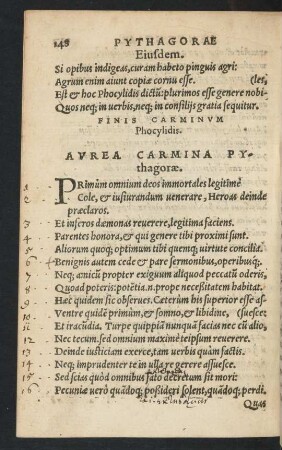 148 PYTHAGORAE
Eiusdem.
Si opibus indigeas, curam habeto pinguis agri:
Agrum enim aiunt copiæ cornu esse. (les,
Est & hoc Phocylidis dictū: plurimos esse genere nobi-
Quos neq; in uerbis, neq; in consilijs gratia sequitur.
FINIS CARMINVM
Phocylidis.
AVREA CARMINA PY-
thagoræ.
1 PRimùm omnium deos immortales legitimè
2 Cole, & iusiurandum uenerare, Heroas deinde
præclaros.
3 Et inferos dæmonas reuerere, legitima faciens.
4 Parentes honora, & qui genere tibi proximi sunt.
5 Aliorum quoq; optimum tibi quemq; uirtute conciliâ.
6 Benignis autem cede & pare sermonibus, operibusq́;.
7 Neq; amicū propter exiguum aliquod peccatū oderis,
8 Quoad poteris: potētia.n.prope necessitatem habitat.
9 Hæc quidem sic obserues. Cæterùm his superior esse as-
10 Ventre quidē primùm, & somno, & libidine, (suesces
11 Et iracudia. Turpe quippiā nunquā facias nec cū alio,
12 Nec tecum. sed omnium maximè teipsum reuerere.
13 Deinde iusticiam exerce, tam uerbis quàm factis.
14 Neq; imprudenter te in ulla re gerere assuesce.
15 Sed scias quòd omnibus fato decretum sit mori:
16 Pecuniæ uerò quādoq; possideri solent, quādoq; perdi.
Quas